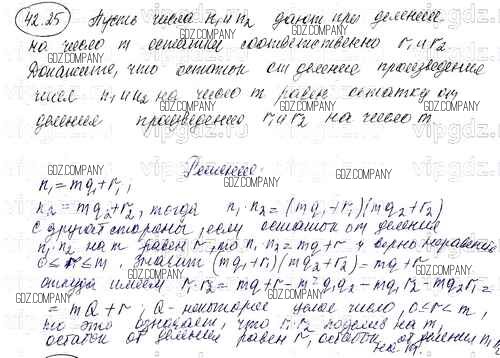 42.25 Пусть числа n₁ и n₂ дают при делении
на число m остатки соответственно r₁ и r₂
Докажите, что остаток от деления произведения
чисел n₁ и n₂ на число m равен остатку от
деления произведения r₁ и r₂ на число m.
Решение:
n₁ = mq₁ + r₁;
n₂ = mq₂ + r₂, тогда n₁·n₂ = (mq₁ + r₁)(mq₂ + r₂)
С другой стороны, если остаток от деления
n₁·n₂ на m равен r, то n₁·n₂ = mq + r и верно неравенство
0 ≤ r ≤ m. Значит (mq₁ + r₁)(mq₂ + r₂) = mq + r
откуда имеем r₁·r₂ = mq + r - m²q₁q₂ - mq₁r₂ - mq₂r₁ =
= mQ + r, Q - некоторое целое число, 0 ≤ r < m,
но это означает, что r₁·r₂ поделив на m,
остаток от деления равен r, остаток от деления n₁n₂
на m.
GDZ.COMPANY
vipgdz.com